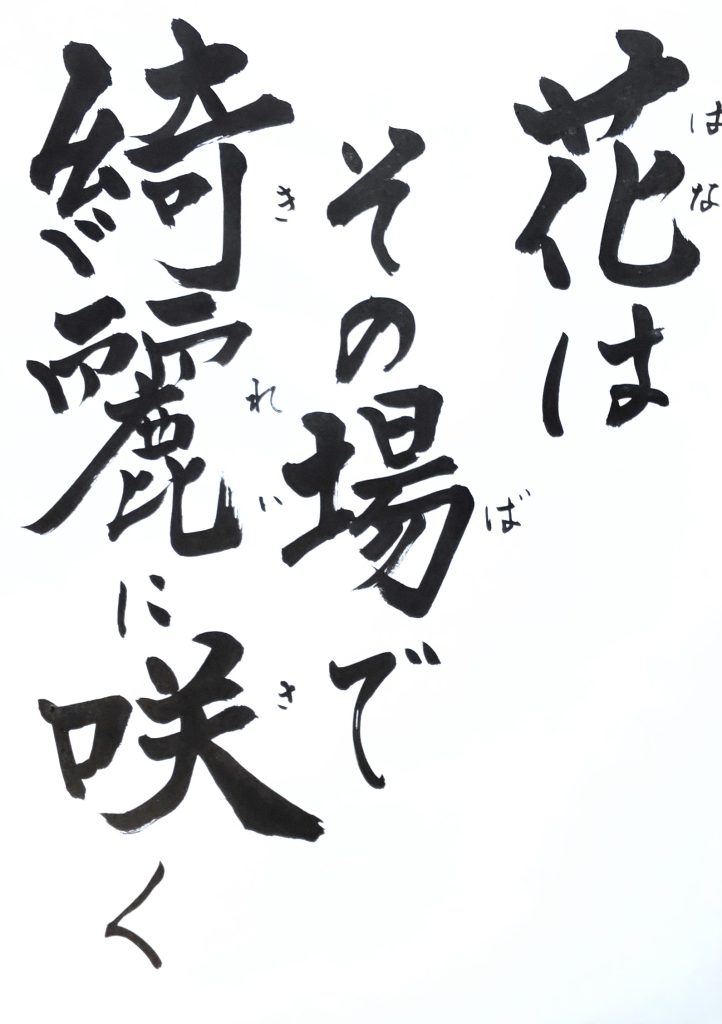 花は
はな
その場で
ば
綺麗に咲く
きれいさ